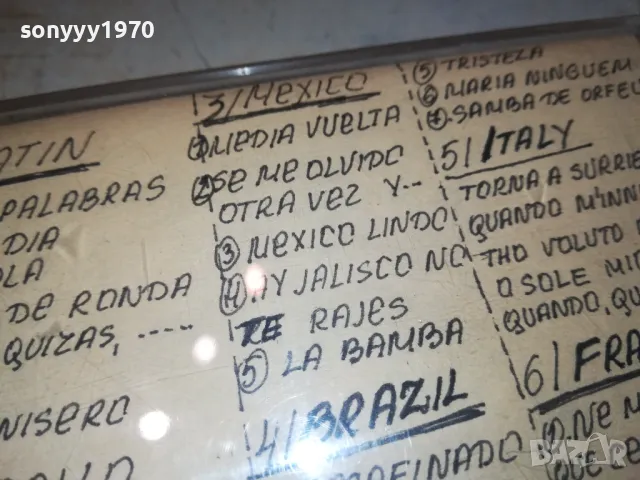 sonyyy1970
ATIN
PALABRAS
DIA
OLA
DE RONDA
QUIZAS, -----
NISERO
3/MEXICO
① MEDIA VUELTA
② SE ME OLVIDO
OTRA VEZ Y--
③ MEXICO LINDO
④ AY JALISCO NO
TE RAJES
⑤ LA BAMBA
4/BRAZIL
AFINADO
⑤ TRISTEZA
⑥ MARIA NINGUEM
⑦ SAMBA DE ORFEU
5/ITALY
TORNA A SURRIE
QUANDO M'INN
THO VOLUTO
O SOLE MIO
QUANDO, QU
6/FRA
① NE
QUE
BAZAR